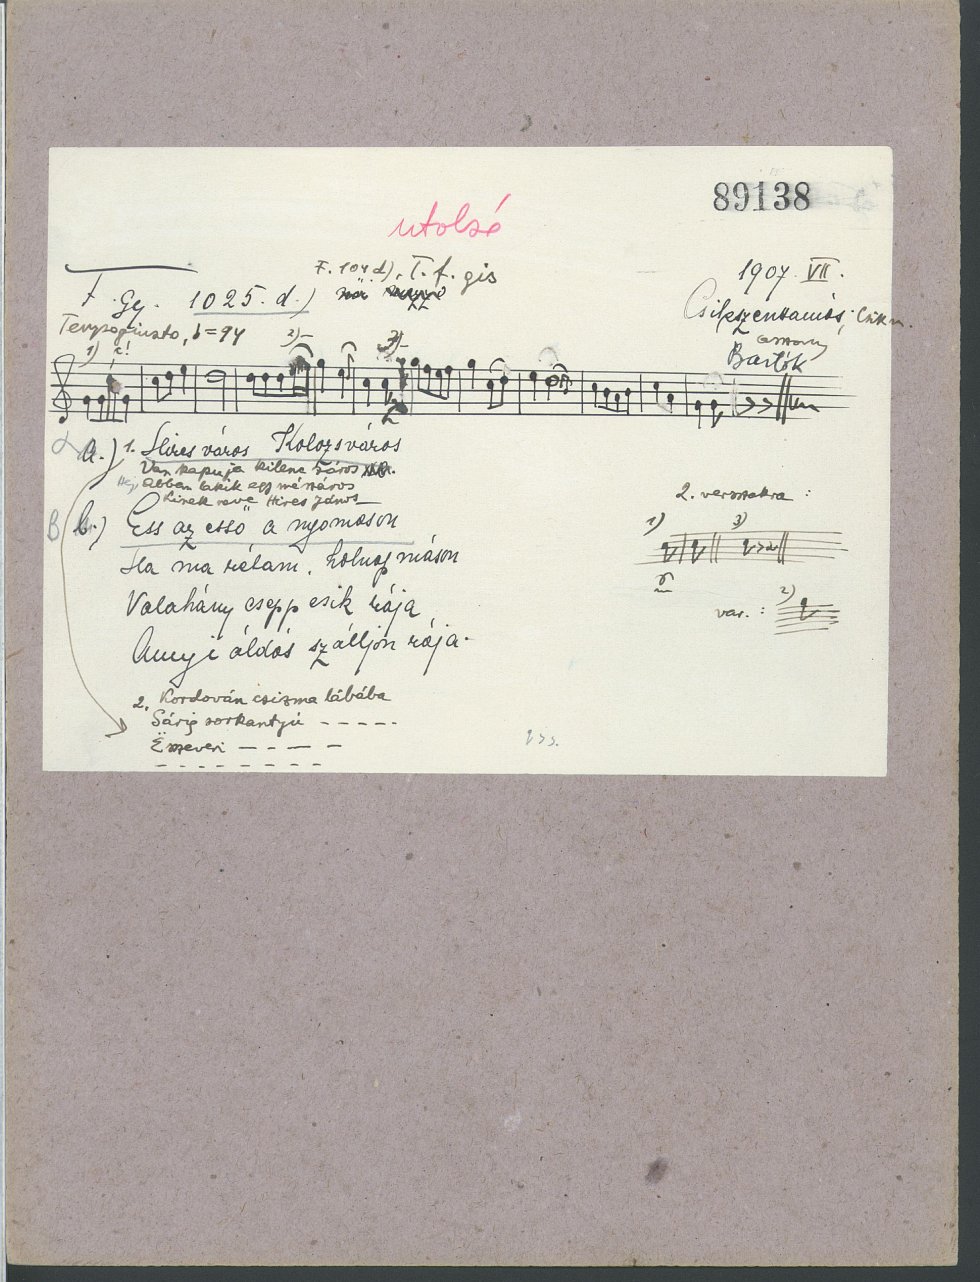 89138
utolsó
F. 104 d), T. f. gis
1907. VII.
F. Gy. 1025. d.)
Csikszentamás; Csík m.
Tempo giusto, = 94
asszony
Bartók
1) 2) 3)
a.) 1. Híres város Kolozsváros
Van kapuja kilenc záros
Abban lakik egy mészáros
Kinek neve Híres János
B b.) Ess az esső a nyomáson
Ha ma rólam, holnap máson
Valahány csepp esik rája
Annyi áldás szálljon rája.
2. Kordován csizma lábába
Sárig sarkantyú – – – – –
Ësszeveri – – – –
– – – – – – – –
2. versszakra :
1) 3)
var. : 2)